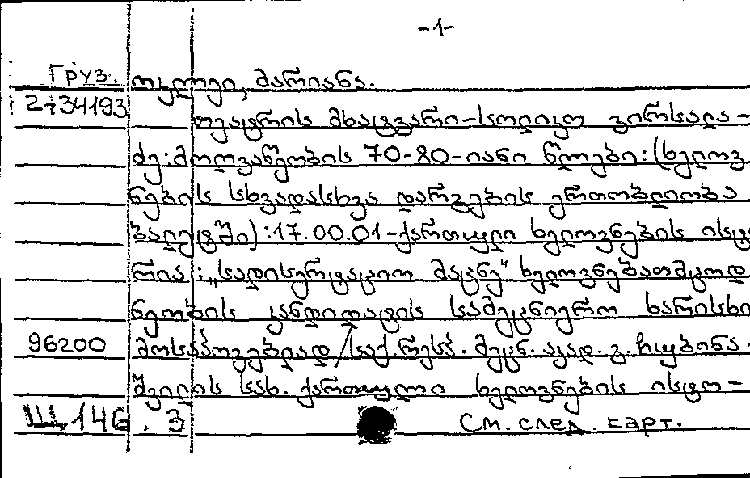 -1-
Груз. ოკლოვი, მარიანა.
2-34193 თეატრის მხატვარი-სოლიკო ვირსალა-
ძე: მოღვაწეობის 70-80-იანი წლები: (ხელოვ
ნების სხვადასხვა დარგების ერთობლიობა
ბალეტში): 17.00.01-ქართული ხელოვნების ისტო
რია: „სადისერტაციო მაცნე“ ხელოვნებათმცოდ
ნეობის კანდიდატის სამეცნიერო ხარისხი
96200 მოსაპოვებლად / საქ. რესპ. მეცნ. აკად. გ. ჩუბინა-
შვილის სახ. ქართული ხელოვნების ისტო-
Ш146.3 См. след. карт.